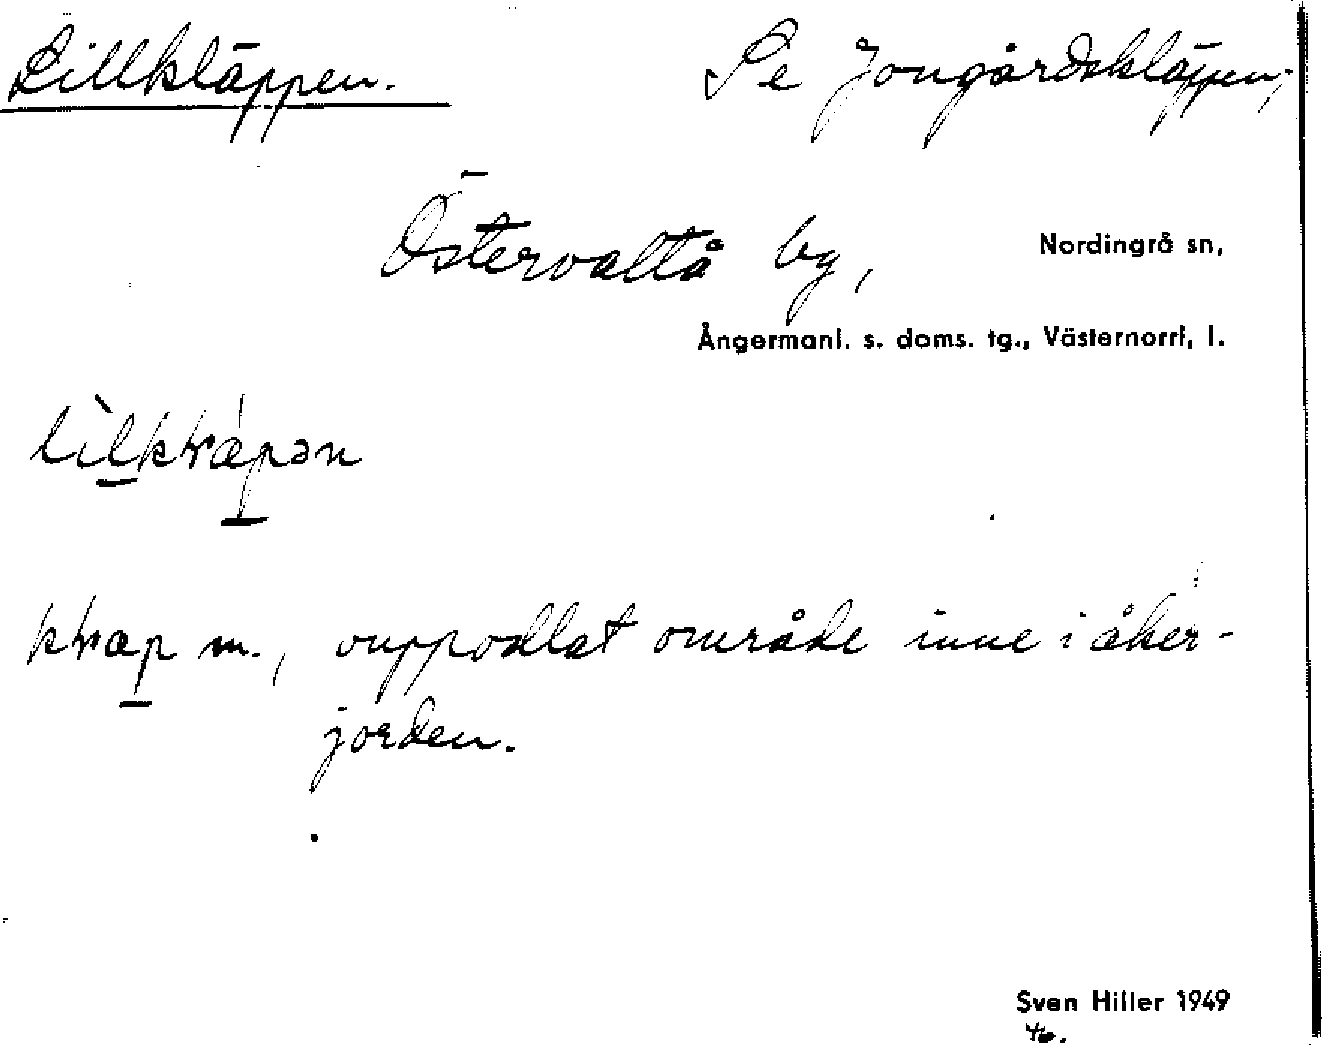 Lillkläppen. Se Jongårdskläppen,
Östervaltå by, Nordingrå sn,
Ångermanl. s. doms. tg., Västernorrl. l.
m., ouppodlat område inne i åker-
jorden.
Sven Hiller 1949
46.